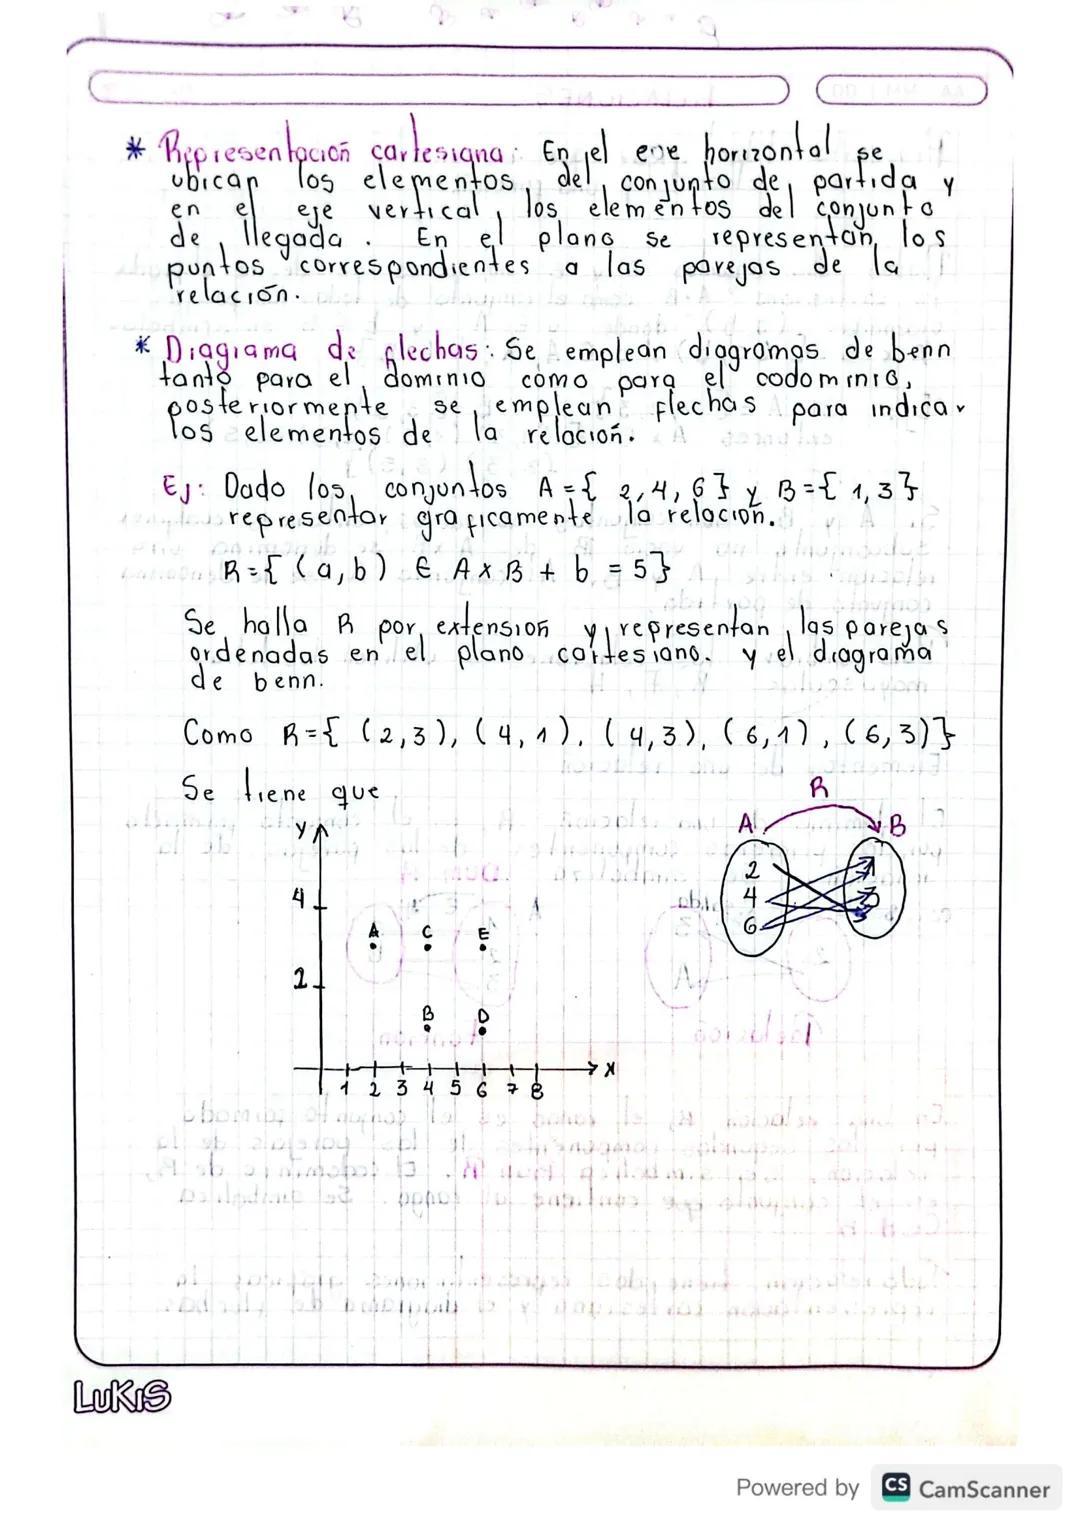 * Representación cartesiana: En el eje horizontal se
ubican los elementos del conjunto de partida y
en el eje vertical, los elementos del conjunto
de llegada. En el plano se representan los
puntos correspondientes a las parejas de la
relación.
* Diagrama de flechas: Se emplean diagramas de benn
tanto para el dominio como para el codominio,
posteriormente se emplean flechas para indicar
los elementos de la relación.
Ej: Dado los conjuntos A = { 2, 4, 6 } y B = { 1, 3 }
representar graficamente la relación.
R = { (a, b) ∈ A x B + b = 5 }
Se halla R por extensión y representan las parejas
ordenadas en el plano cartesiano. y el diagrama
de benn.
Como R = { (2,3), (4,1), (4,3), (6,1), (6,3) }
Se tiene que
R
A B
2 1
4 3
6
y
4
A C E
2
B D
x
1 2 3 4 5 6 7 8
LUKIS
Powered by CS CamScanner